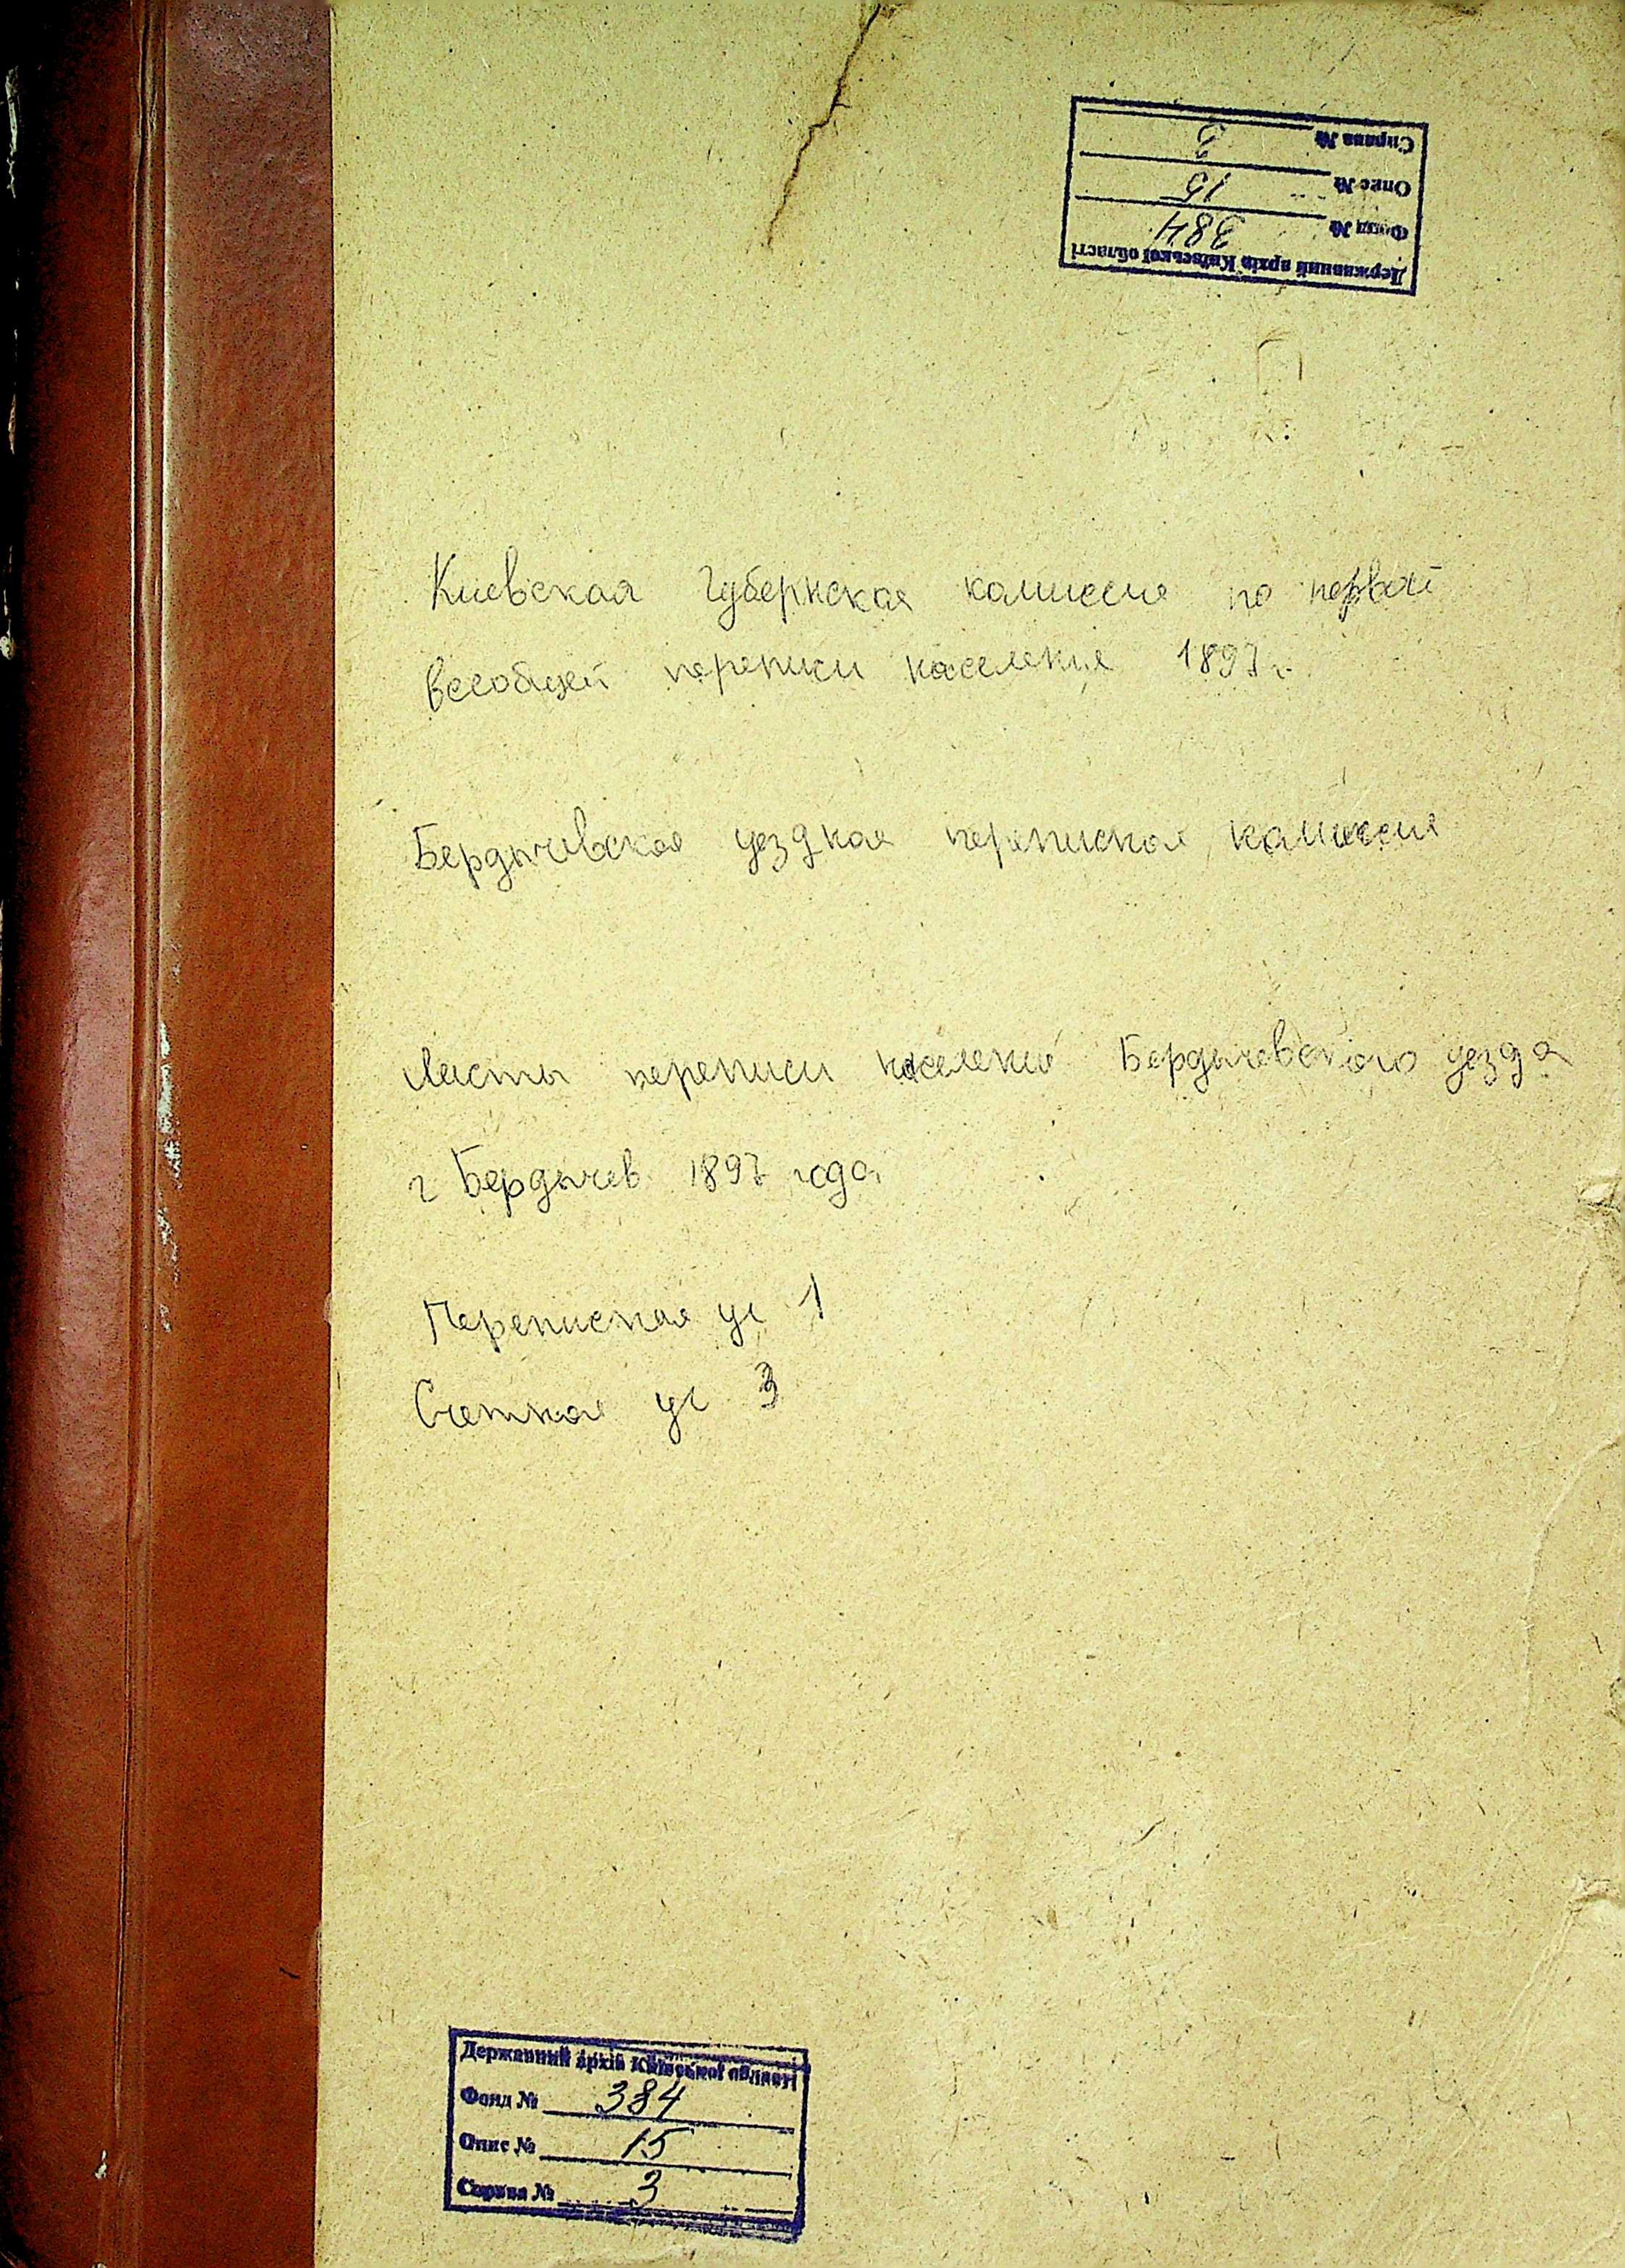 Державний архів Київської області
Фонд № 384
Опис № 15
Справа № 3
Киевская Губернская комиссия по первой
всеобщей переписи населения 1897 г.
Бердичевская уездная переписная комиссия
Листы переписи населения Бердичевского уезда
г Бердичев 1897 года
Переписная уч 1
Счетная уч 3
Державний архів Київської області
Фонд № 384
Опис № 15
Справа № 3